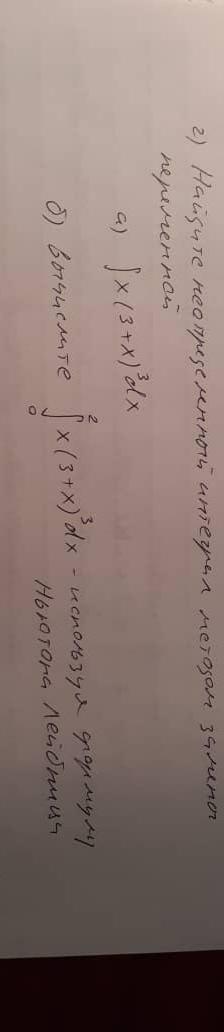 г) Найдите неопределенный интеграл методом замены
переменной
а) ∫ x(3+x)³dx
б) вычислите ∫₀² x(3+x)³dx - используя формулу
Ньютона Лейбница